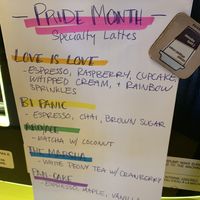 PRIDE MONTH
Specialty Lattes
LOVE IS LOVE
- ESPRESSO, RASPBERRY, CUPCAKE
WHIPPED CREAM, + RAINBOW
SPRINKLES
BI PANIC
- ESPRESSO, CHAI, BROWN SUGAR
- MATCHA W/ COCONUT
THE MARSHA
- WHITE PEONY TEA W/ CRANBERRY
- ESPRESSO, MAPLE, VANILLA